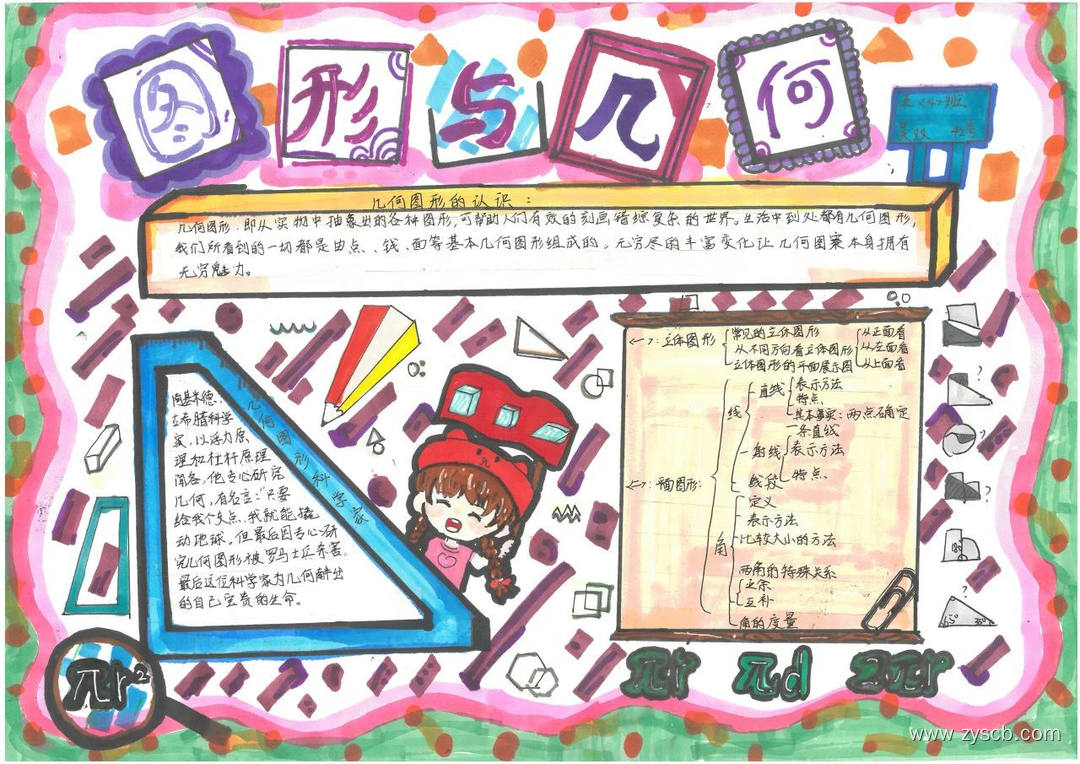 图形与几何
几何图形的认识：
几何图形，即从实物中抽象出的各种图形，可帮助人们有效的刻画错综复杂的世界。生活中到处都有几何图形，
我们所看到的一切都是由点、线、面等基本几何图形组成的。无穷尽的丰富变化让几何图案本身拥有
无穷魅力。
几何图形科学家
阿基米德，
古希腊科学
家，以浮力原
理和杠杆原理
闻名，他专心研究
几何，有名言："只要
给我个支点，我就能撬
动地球，但最后因专心研
究几何图形被罗马士兵杀害。
最后这位科学家为几何献出
的自己宝贵的生命。
<一>：立体图形
常见的立体图形
从不同方向看立体图形
立体图形的平面展示图
从正面看
从左面看
从上面看
<二>：平面图形：
线
直线
表示方法
特点
基本事实：两点确定
一条直线
射线
表示方法
线段
特点
角
定义
表示方法
比较大小的方法
两角的特殊关系
互余
互补
角的度量
πr²
πr πd 2πr
45°
www.zyscb.com